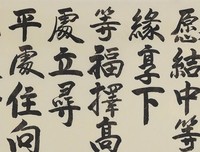 愿結中等
緣享下
等福擇高
處立尋
平處住向